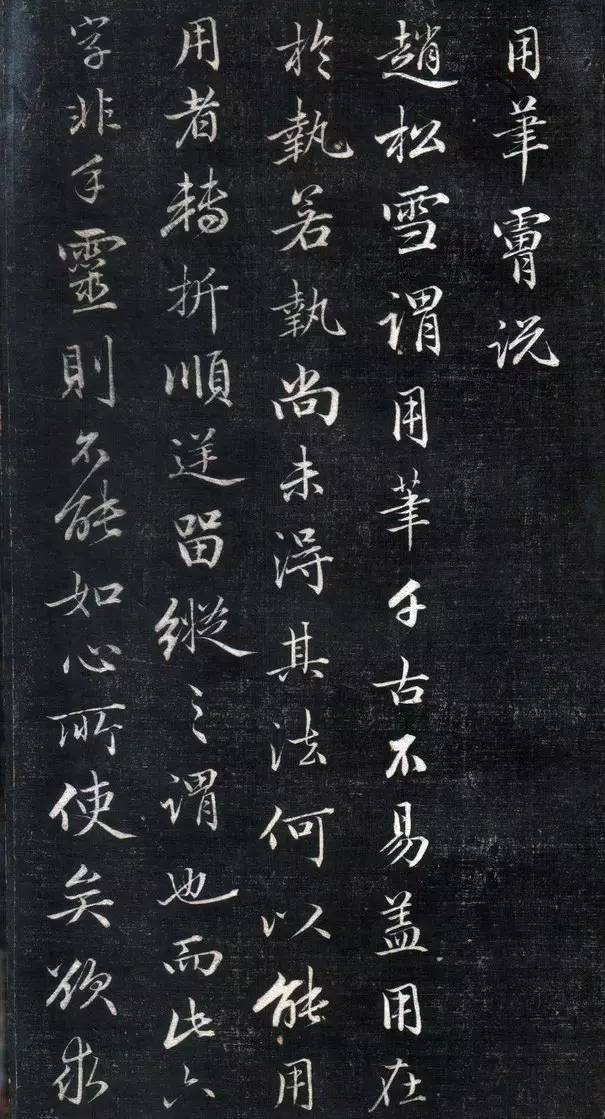 用筆霄说
趙松雪謂用筆千古不易盖用在
於執若執尚未得其法何以能用
用者轉折順逆留縱之謂也而此六
字非手靈則不能如心所使矣欲求